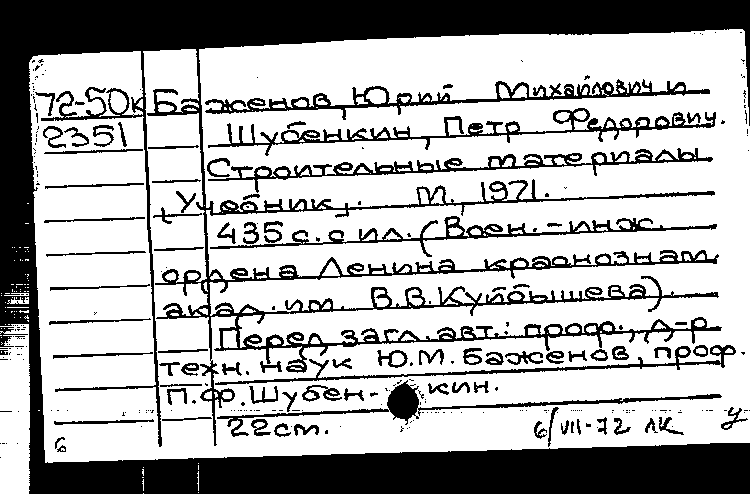 72-50к Баженов, Юрий Михайлович и
2351 Шубенкин, Петр Федорович.
Строительные материалы.
[Учебник]. М., 1971.
435 с. с ил. (Воен.-инж.
ордена Ленина краснознам.
акад. им. В.В.Куйбышева).
Перед загл. авт.: проф., д-р
техн. наук Ю.М.Баженов, проф.
П.Ф.Шубен-кин.
22 см.
6 6/VII-72 ЛК У